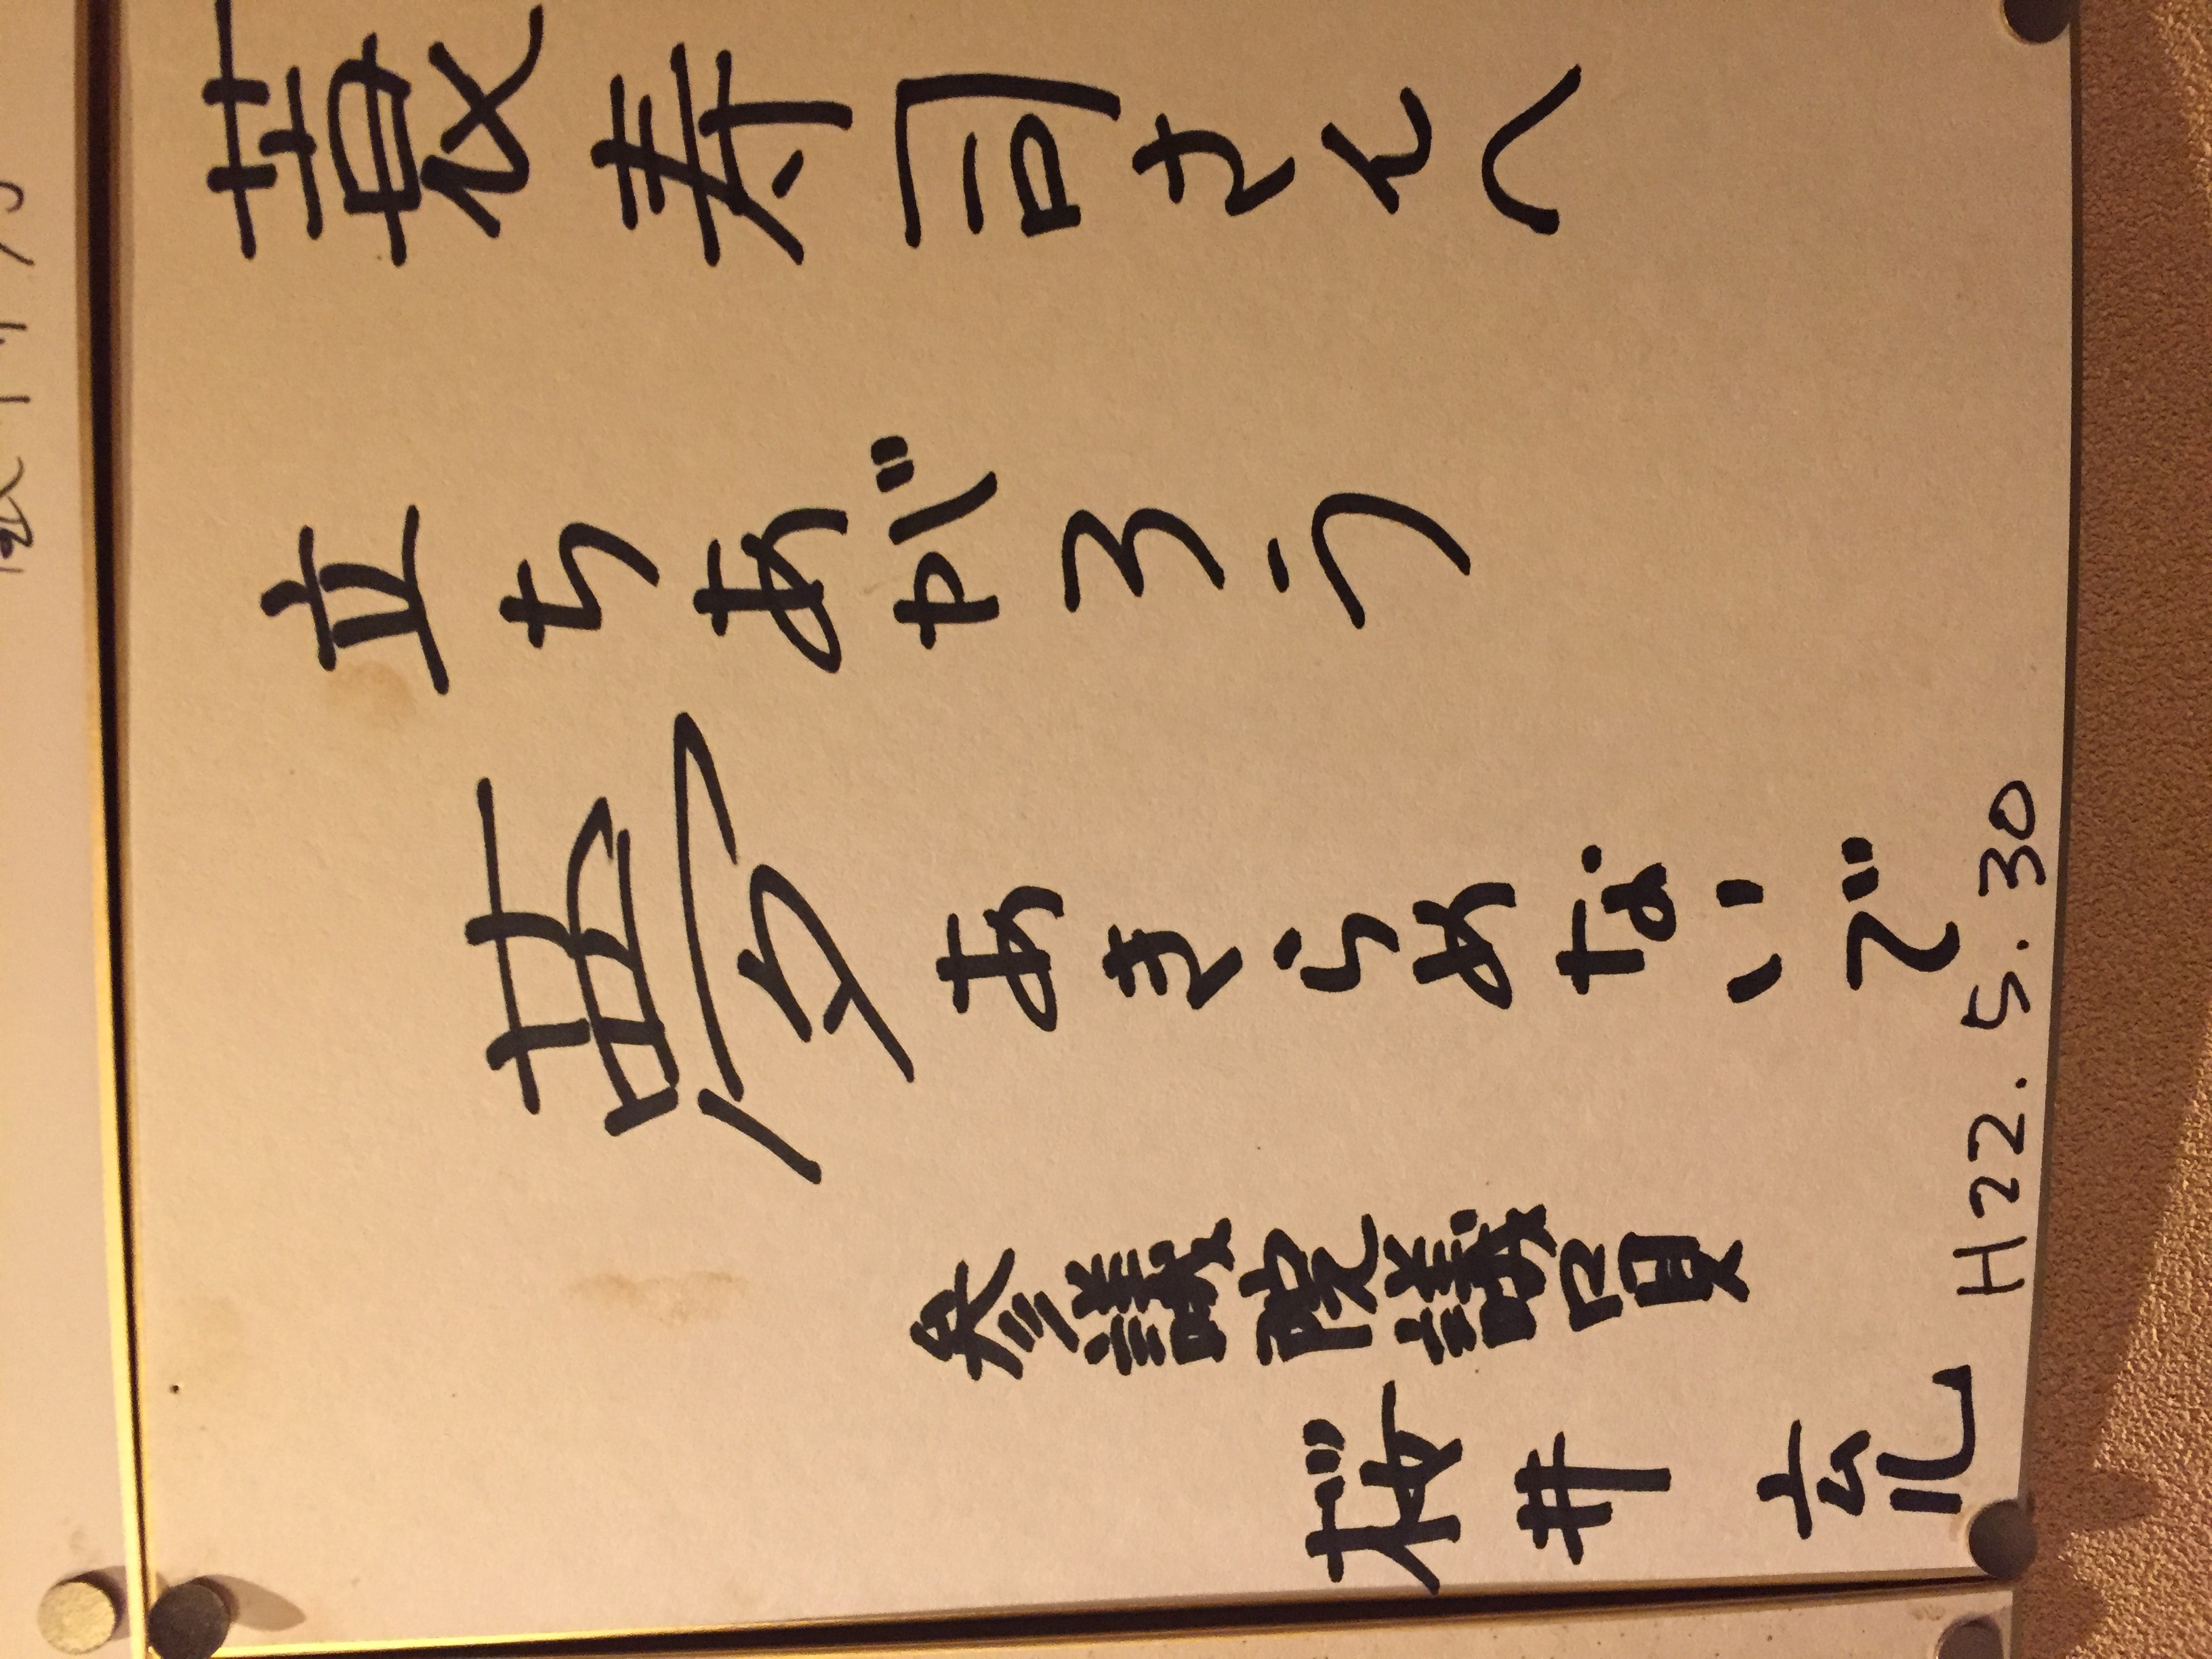 寿司さんへ
立ちあがろう
夢あきらめないで
参議院議員
桜井 充
H22.5.30